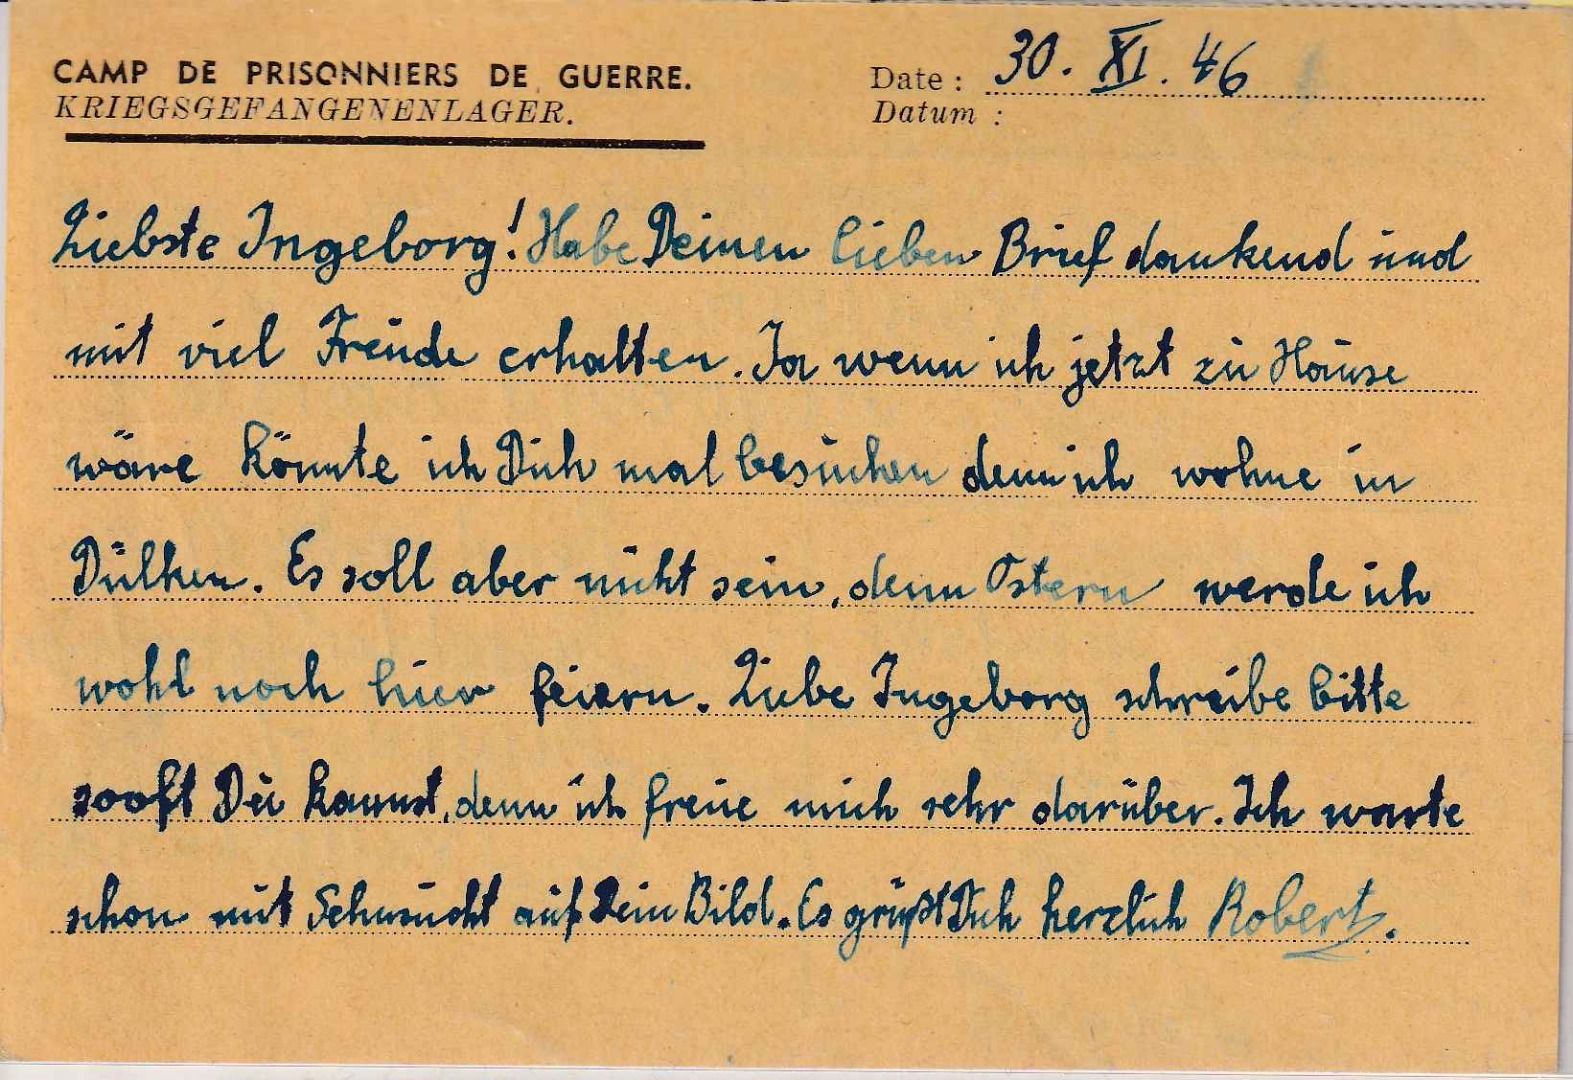 CAMP DE PRISONNIERS DE GUERRE.
KRIEGSGEFANGENENLAGER.
Date : 30. XI. 46
Datum :
Liebste Ingeborg! Habe Deinen lieben Brief dankend und
mit viel Freude erhalten. Ja wenn ich jetzt zu Hause
wäre könnte ich Dich mal besuchen denn ich wohne in
Dülken. Es soll aber nicht sein, denn Ostern werde ich
wohl noch hier feiern. Liebe Ingeborg schreibe bitte
sooft Du kannst, denn ich freue mich sehr darüber. Ich warte
schon mit Sehnsucht auf Dein Bild. Es grüßt Dich herzlich Robert.